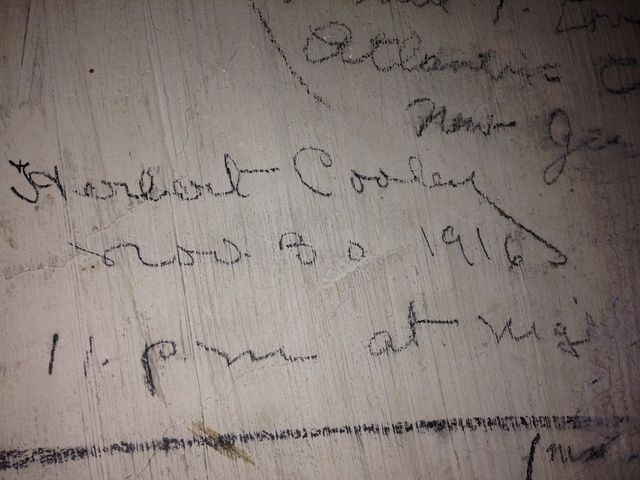 Atlantic C
New Je
Herbert Cooley
Nov. 30 1916
11. pm at nig